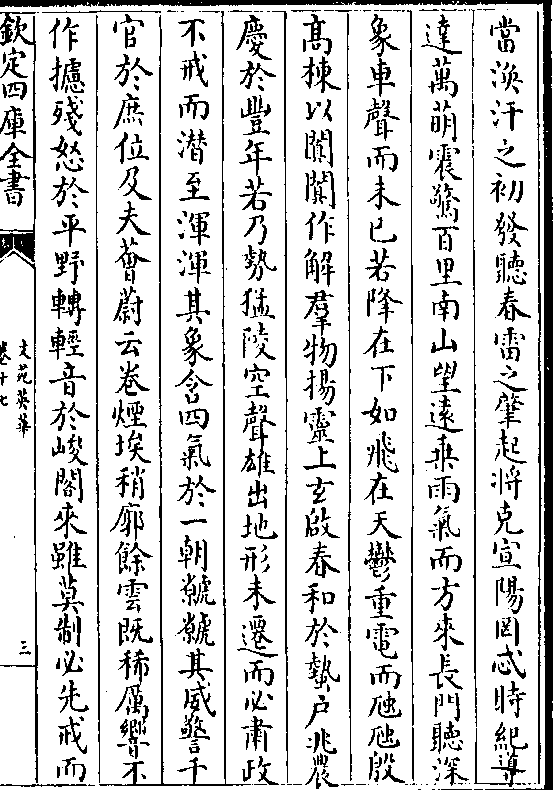 當渙汗之初發聽春雷之肇起將克宣陽罔忒時紀導
達萬萌震驚百里南山望遠乗雨氣而方來長門聽深
象車聲而未已若降在下如飛在天鬱重電而虺虺殷
髙棟以闐闐作解羣物揚靈上玄啟春和於蟄户兆農
慶於豐年若乃勢猛陵空聲雄出地形未遷而必肅政
不戒而潜至渾渾其象含四氣於一朝虩虩其威警千
官於庶位及夫薈蔚云卷煙埃稍廓餘雲既稀厲響不
作攄殘怒於平野轉輕音於峻閣來雖莫制必先戒而
欽定四庫全書
文苑英華
卷十七
三